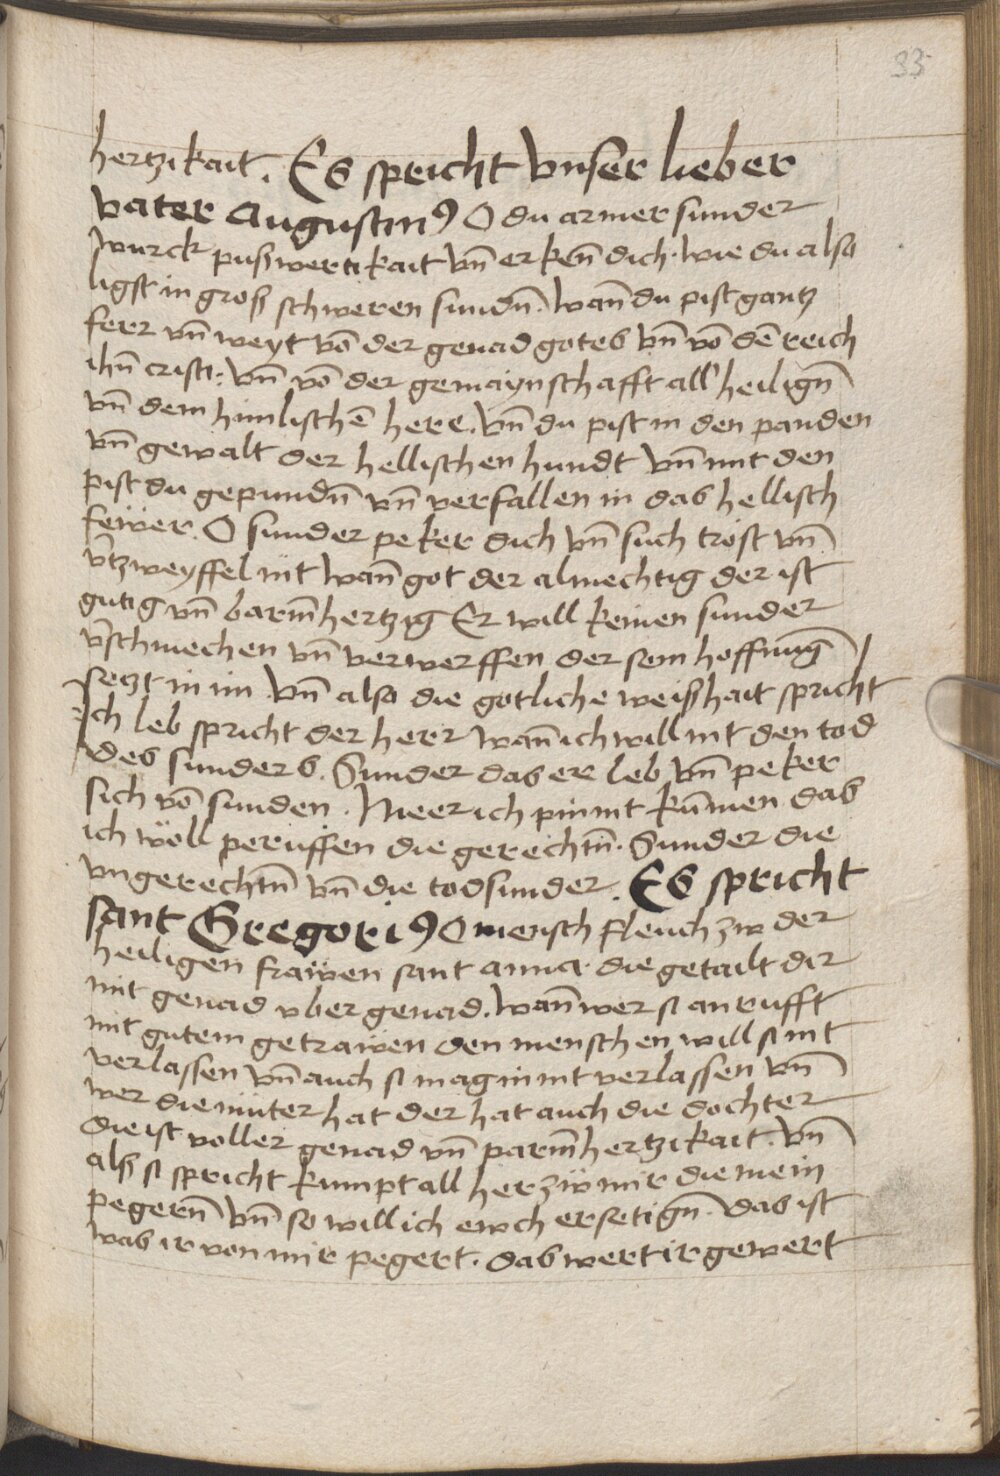 33
hertzikait. Es spricht vnser lieber
vater Augustin⁹ O du armer sunder
wurck puswertikait vn̄ erken̄ dich. wie du also
ligst in groß schweren sundn̄. wan̄ du pist gantz
ferr vn̄ weyt vō der genad gotes vn̄ vō dē reich
ihū cristi. vn̄ vō der gemaynschafft all heilign̄
vn̄ dem himlischē here. vn̄ du pist in den panden
vn̄ gewalt der hellischen hundt vn̄ mit den
pist du gepundn̄ vn̄ verfallen in das hellisch
fewer. O sunder peker dich vn̄ such trost vn̄
v̄tzweyffel nit wan̄ got der almechtig der ist
gutig vn̄ barm̄hertzig Er will keinen sunder
v̄schmechen vn̄ verwerffen der sein hoffnung
setzt in im. Vn̄ also die gotliche weißhait spricht
Ich leb spricht der herr wan̄ ich will nit den tod
des sunders. Sunder das er leb vn̄ peker
sich vō sunden. Meer ich pin nit kūmen das
ich wöll peruffen die gerechtn̄. Sunder die
vngerechtn̄ vn̄ die todsunder. Es spricht
sant Gregori⁹ O mensch fleuch zw der
heiligen frawen sant anna die getailt dir
mit genad vber genad. wan̄ wer si anrufft
mit gutem getrawen den menschen will si nit
verlassen vn̄ auch si mag in nit verlassen vn̄
wer die muter hat der hat auch die dochter
die ist voller genad vn̄ parm̄hertzikait. vn̄
alß si spricht kumpt all her zw mir die mein
pegern̄ vn̄ so will ich ewch ersetign̄. das ist
was ir von mir pegert. das wert ir gewert